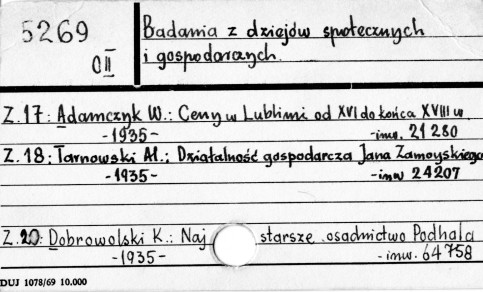 5269
OII
Badania z dziejów społecznych
i gospodarczych.
Z.17: Adamczyk W.: Ceny w Lublinie od XVI do końca XVIII w.
-1935- -inw. 21280
Z.18: Tarnowski A.: Działalność gospodarcza Jana Zamoyskiego
-1935- -inw 24207
Z.20: Dobrowolski K.: Naj starsze osadnictwo Podhala
-1935- -inw. 64758
DUJ 1078/69 10.000